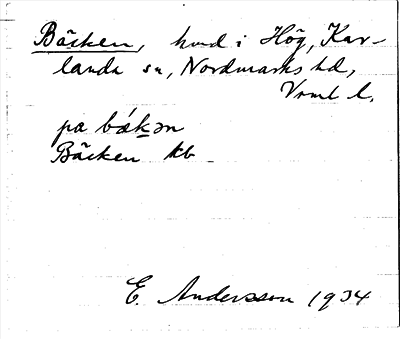 Bäcken, hmd i Hög, Kar-
landa sn, Nordmarks hd,
Vrml l.
pa bǽkən
Bäcken kb
E. Andersson 1934